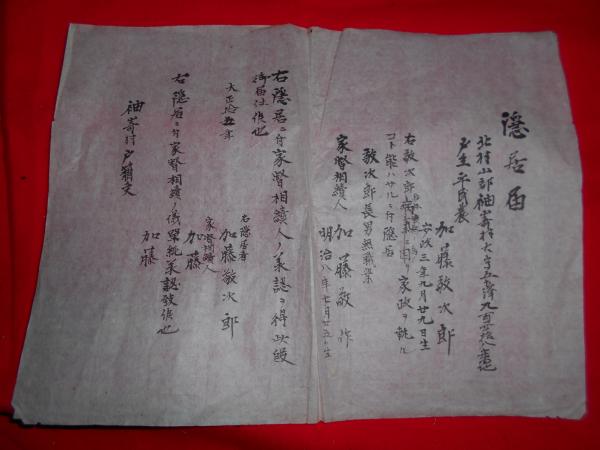 隠居届
北村山郡袖崎村大字五十沢九百四拾八番地
戸主平民農
加藤敬次郎
安政三年九月廿九日生
右敬次郎病気ニ因リ家政ヲ執ル
コト能ハサルニ付隠居
敬次郎長男無職業
家督相續人 加藤敬作
明治八年七月廿五日生
右隠居ニ付家督相續人ノ承認ヲ得此段
御届仕候也
大正拾五年
右隠居者
加藤敬次郎
家督相續人
加藤
右隠居ニ付家督相續ノ儀單純承認致候也
加藤
袖崎村戸籍吏